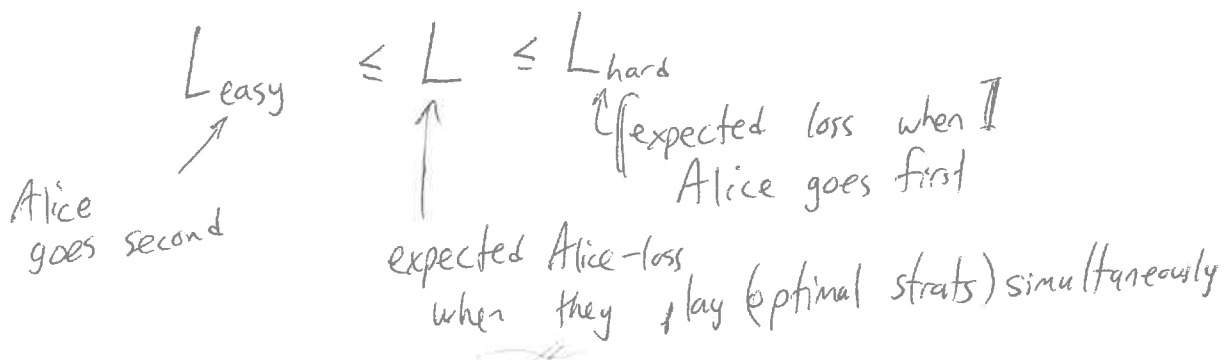 L easy ≤ L ≤ L hard
[expected loss when]
Alice goes first
Alice
goes second
expected Alice-loss
when they play (optimal strats) simultaneously